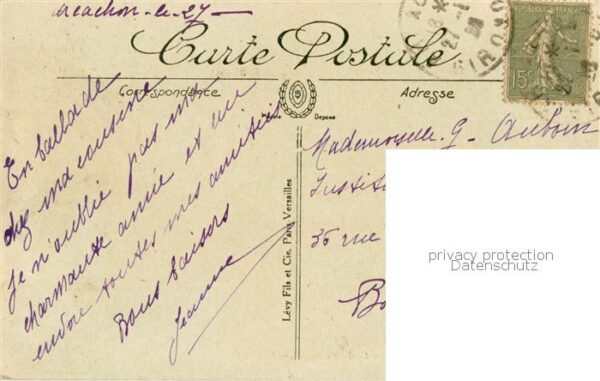 Arcachon - le 27 -
Carte Postale
Correspondance
Adresse
RÉPUBLIQUE FRANÇAISE
15c
27-1
GIRONDE
En ballade
chez ma cousine
je n'oublie pas ma
charmante amie et lui
envoie toutes mes amitiés
Bons baisers
Jeanne
Lévy Fils et Cie, Paris Versailles
Déposé
Mademoiselle G. Auboin
36 rue
privacy protection
Datenschutz